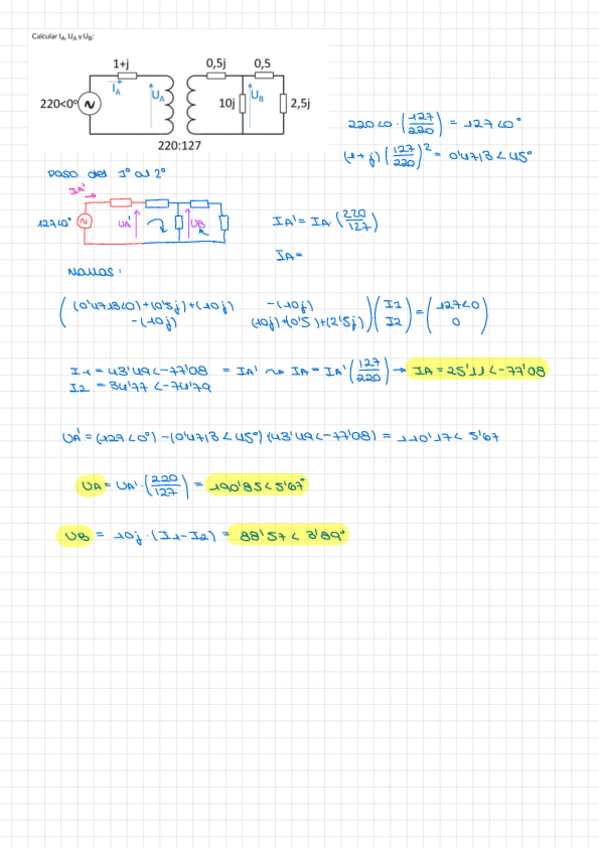 Calcular IA, UA y UB:
1+j
0,5j
0,5
IA
UA
UB
220<0º
10j
2,5j
220:127
220<0 · (127/220) = 127<0°
(1+j) (127/220)² = 0'4713<45°
Paso del 1º al 2º
IA'
127<0°
UA'
UB
IA' = IA (220/127)
IA =
Mallas:
( (0'4713<0)+(0'5j)+(10j) -(10j) ) ( I1 ) = ( 127<0 )
( -(10j) (10j)+(0'5)+(2'5j) ) ( I2 ) ( 0 )
I1 = 43'49<-77'08 = IA' ⤳ IA = IA' (127/220) → IA = 25'11<-77'08
I2 = 34'77<-74'79
UA' = (127<0°) - (0'4713<45°) (43'49<-77'08) = 110'17<5'67
UA = UA' · (220/127) = 190'85<5'67°
UB = 10j · (I1-I2) = 88'57<3'89°